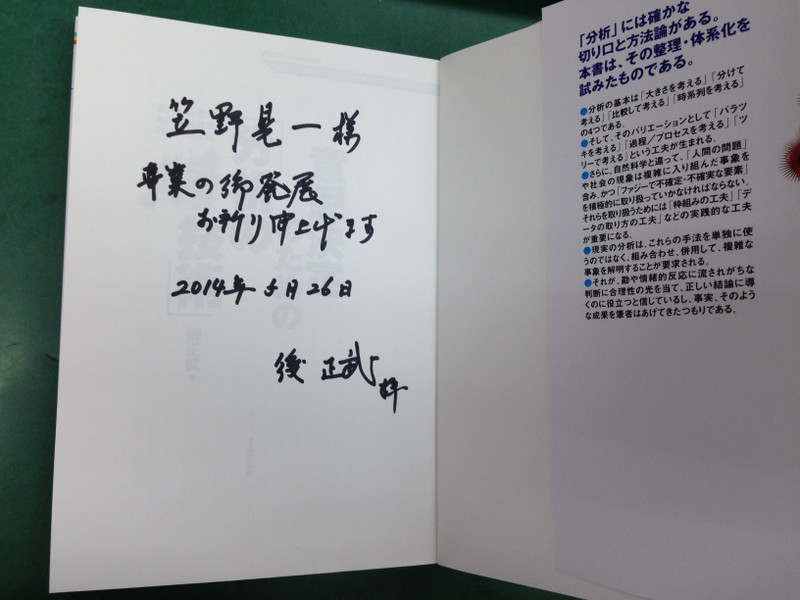 笠野晃一様
事業の御発展
お祈り申上げます
2014年5月26日
後 正武
拝
「分析」には確かな
切り口と方法論がある。
本書は、その整理・体系化を
試みたものである。
●分析の基本は「大きさを考える」「分けて
考える」「比較して考える」「時系列を考える」
の4つである。
●そして、そのバリエーションとして「バラツ
キを考える」「過程／プロセスを考える」「ツ
リーで考える」という工夫が生まれる。
●さらに、自然科学と違って、「人間の問題」
や社会の現象は複雑に入り組んだ事象を
含み、かつ「ファジーで不確定・不確実な要素」
を積極的に取り扱っていかなければならない。
それらを取り扱うためには「枠組みの工夫」「デ
ータの取り方の工夫」などの実践的な工夫
が重要になる。
●現実の分析は、これらの手法を単独に使
うのではなく、組み合わせ、併用して、複雑な
事象を解明することが要求される。
●それが、勘や情緒的反応に流されがちな
判断に合理性の光を当て、正しい結論に導
くのに役立つと信じているし、事実、そのよう
な成果を筆者はあげてきたつもりである。